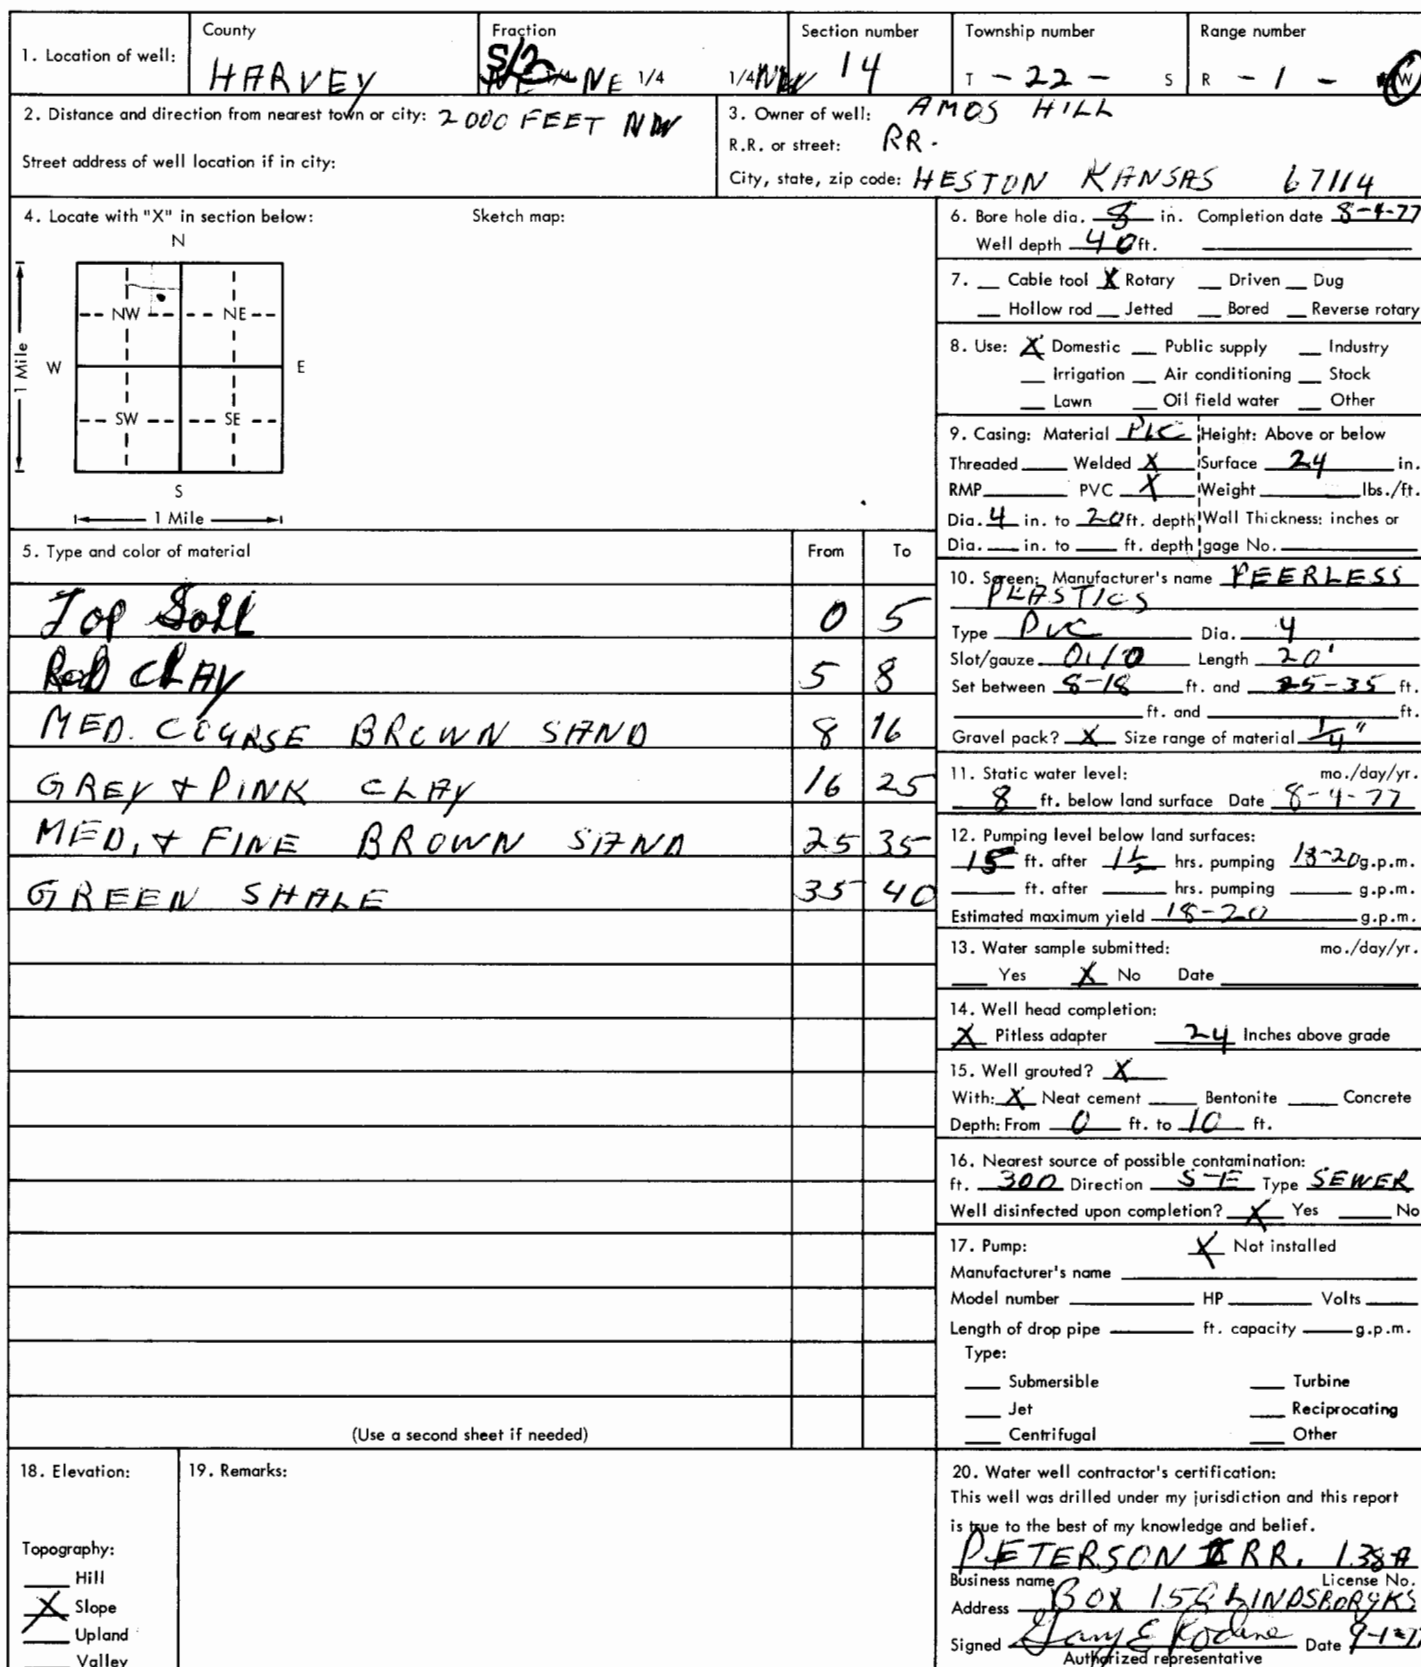 County Fraction Section number Township number Range number
1. Location of well: HARVEY S/2 NE 1/4 1/4 NW 14 T - 22 - S R - 1 - W
2. Distance and direction from nearest town or city: 2000 FEET NW
Street address of well location if in city:
3. Owner of well: AMOS HILL
R.R. or street: RR.
City, state, zip code: HESTON KANSAS 67114
4. Locate with "X" in section below: Sketch map:
N
NW NE
W E
1 Mile
SW SE
S
1 Mile
5. Type and color of material From To
Top Soil 0 5
Red CLAY 5 8
MED. COURSE BROWN SAND 8 16
GREY + PINK CLAY 16 25
MED, + FINE BROWN SAND 25 35
GREEN SHALE 35 40
(Use a second sheet if needed)
6. Bore hole dia. 8 in. Completion date 8-4-77
Well depth 40 ft.
7. Cable tool X Rotary Driven Dug
Hollow rod Jetted Bored Reverse rotary
8. Use: X Domestic Public supply Industry
Irrigation Air conditioning Stock
Lawn Oil field water Other
9. Casing: Material Height: Above or below
Threaded Welded X Surface 24 in.
RMP PVC X Weight lbs./ft.
Dia. 4 in. to 20 ft. depth Wall Thickness: inches or
Dia. in. to ft. depth gage No.
10. Screen: Manufacturer's name PEERLESS
PLASTICS
Type PVC Dia. 4
Slot/gauze 0.10 Length 20'
Set between 8-18 ft. and 25-35 ft.
ft. and ft.
Gravel pack? X Size range of material 1/4"
11. Static water level: mo./day/yr.
8 ft. below land surface Date 8-4-77
12. Pumping level below land surfaces:
15 ft. after hrs. pumping 18-20 g.p.m.
ft. after hrs. pumping g.p.m.
Estimated maximum yield 18-20 g.p.m.
13. Water sample submitted: mo./day/yr.
Yes X No Date
14. Well head completion:
X Pitless adapter 24 Inches above grade
15. Well grouted? X
With: X Neat cement Bentonite Concrete
Depth: From 0 ft. to 10 ft.
16. Nearest source of possible contamination:
ft. 300 Direction S-E Type SEWER
Well disinfected upon completion? X Yes No
17. Pump: X Not installed
Manufacturer's name
Model number HP Volts
Length of drop pipe ft. capacity g.p.m.
Type:
Submersible Turbine
Jet Reciprocating
Centrifugal Other
18. Elevation:
Topography:
Hill
X Slope
Upland
Valley
19. Remarks:
20. Water well contractor's certification:
This well was drilled under my jurisdiction and this report
is true to the best of my knowledge and belief.
PETERSON IRR. 138-A
Business name License No.
Address BOX LINDSBORG KS
Signed Gary E Date
Authorized representative